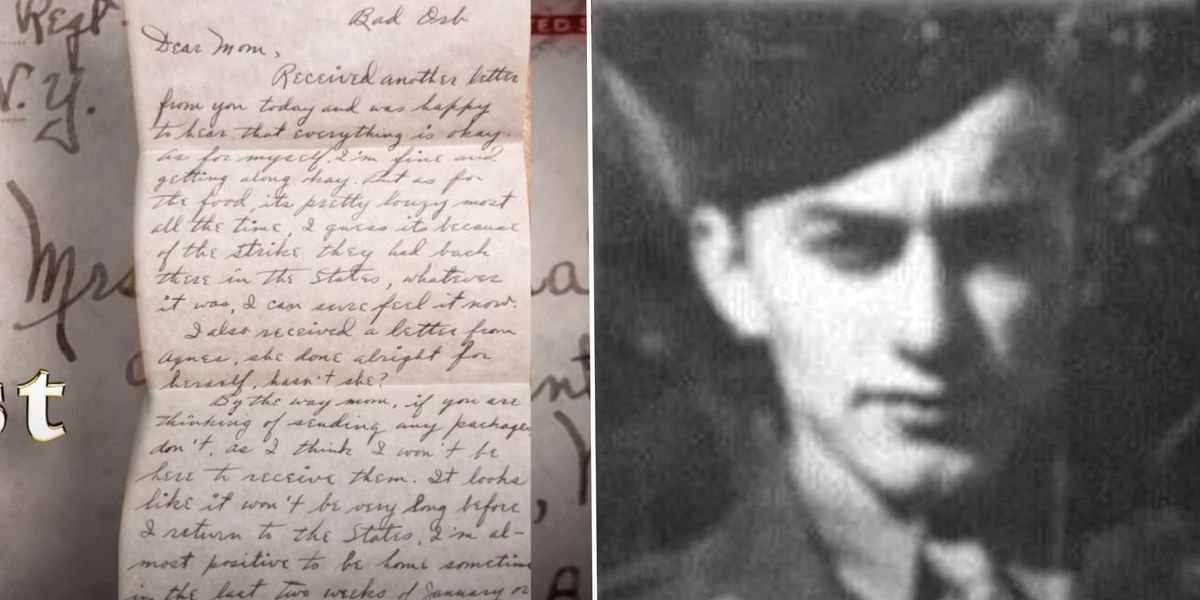 Regt.
N.Y.
Mrs
st
TED S
Bad Orb
Dear Mom,
Received another letter
from you today and was happy
to hear that everything is okay.
As for myself, I'm fine and
getting along okay. But as for
the food, its pretty louzy most
all the time, I guess its because
of the strike they had back
there in the States, whatever
it was, I can sure feel it now.
I also received a letter from
Agnes, she done alright for
herself, hasn't she?
By the way mom, if you are
thinking of sending any packages
don't, as I think I won't be
here to receive them. It looks
like it won't be very long before
I return to the States, I'm al-
most positive to be home sometime
in the last two weeks of January or